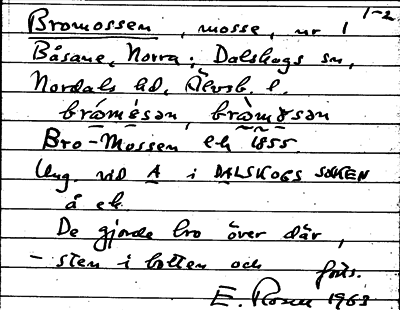 1-2
Bromossen, mosse, nr 1
Båsane, Norra; Dalskogs sn,
Nordals hd, Älvsb. l.
Bro-Mossen ek 1855
Ung. vid A i DALSKOGS SOCKEN
å ek.
De gjorde bro över där,
- sten i botten och forts.
E. Rosen 1963